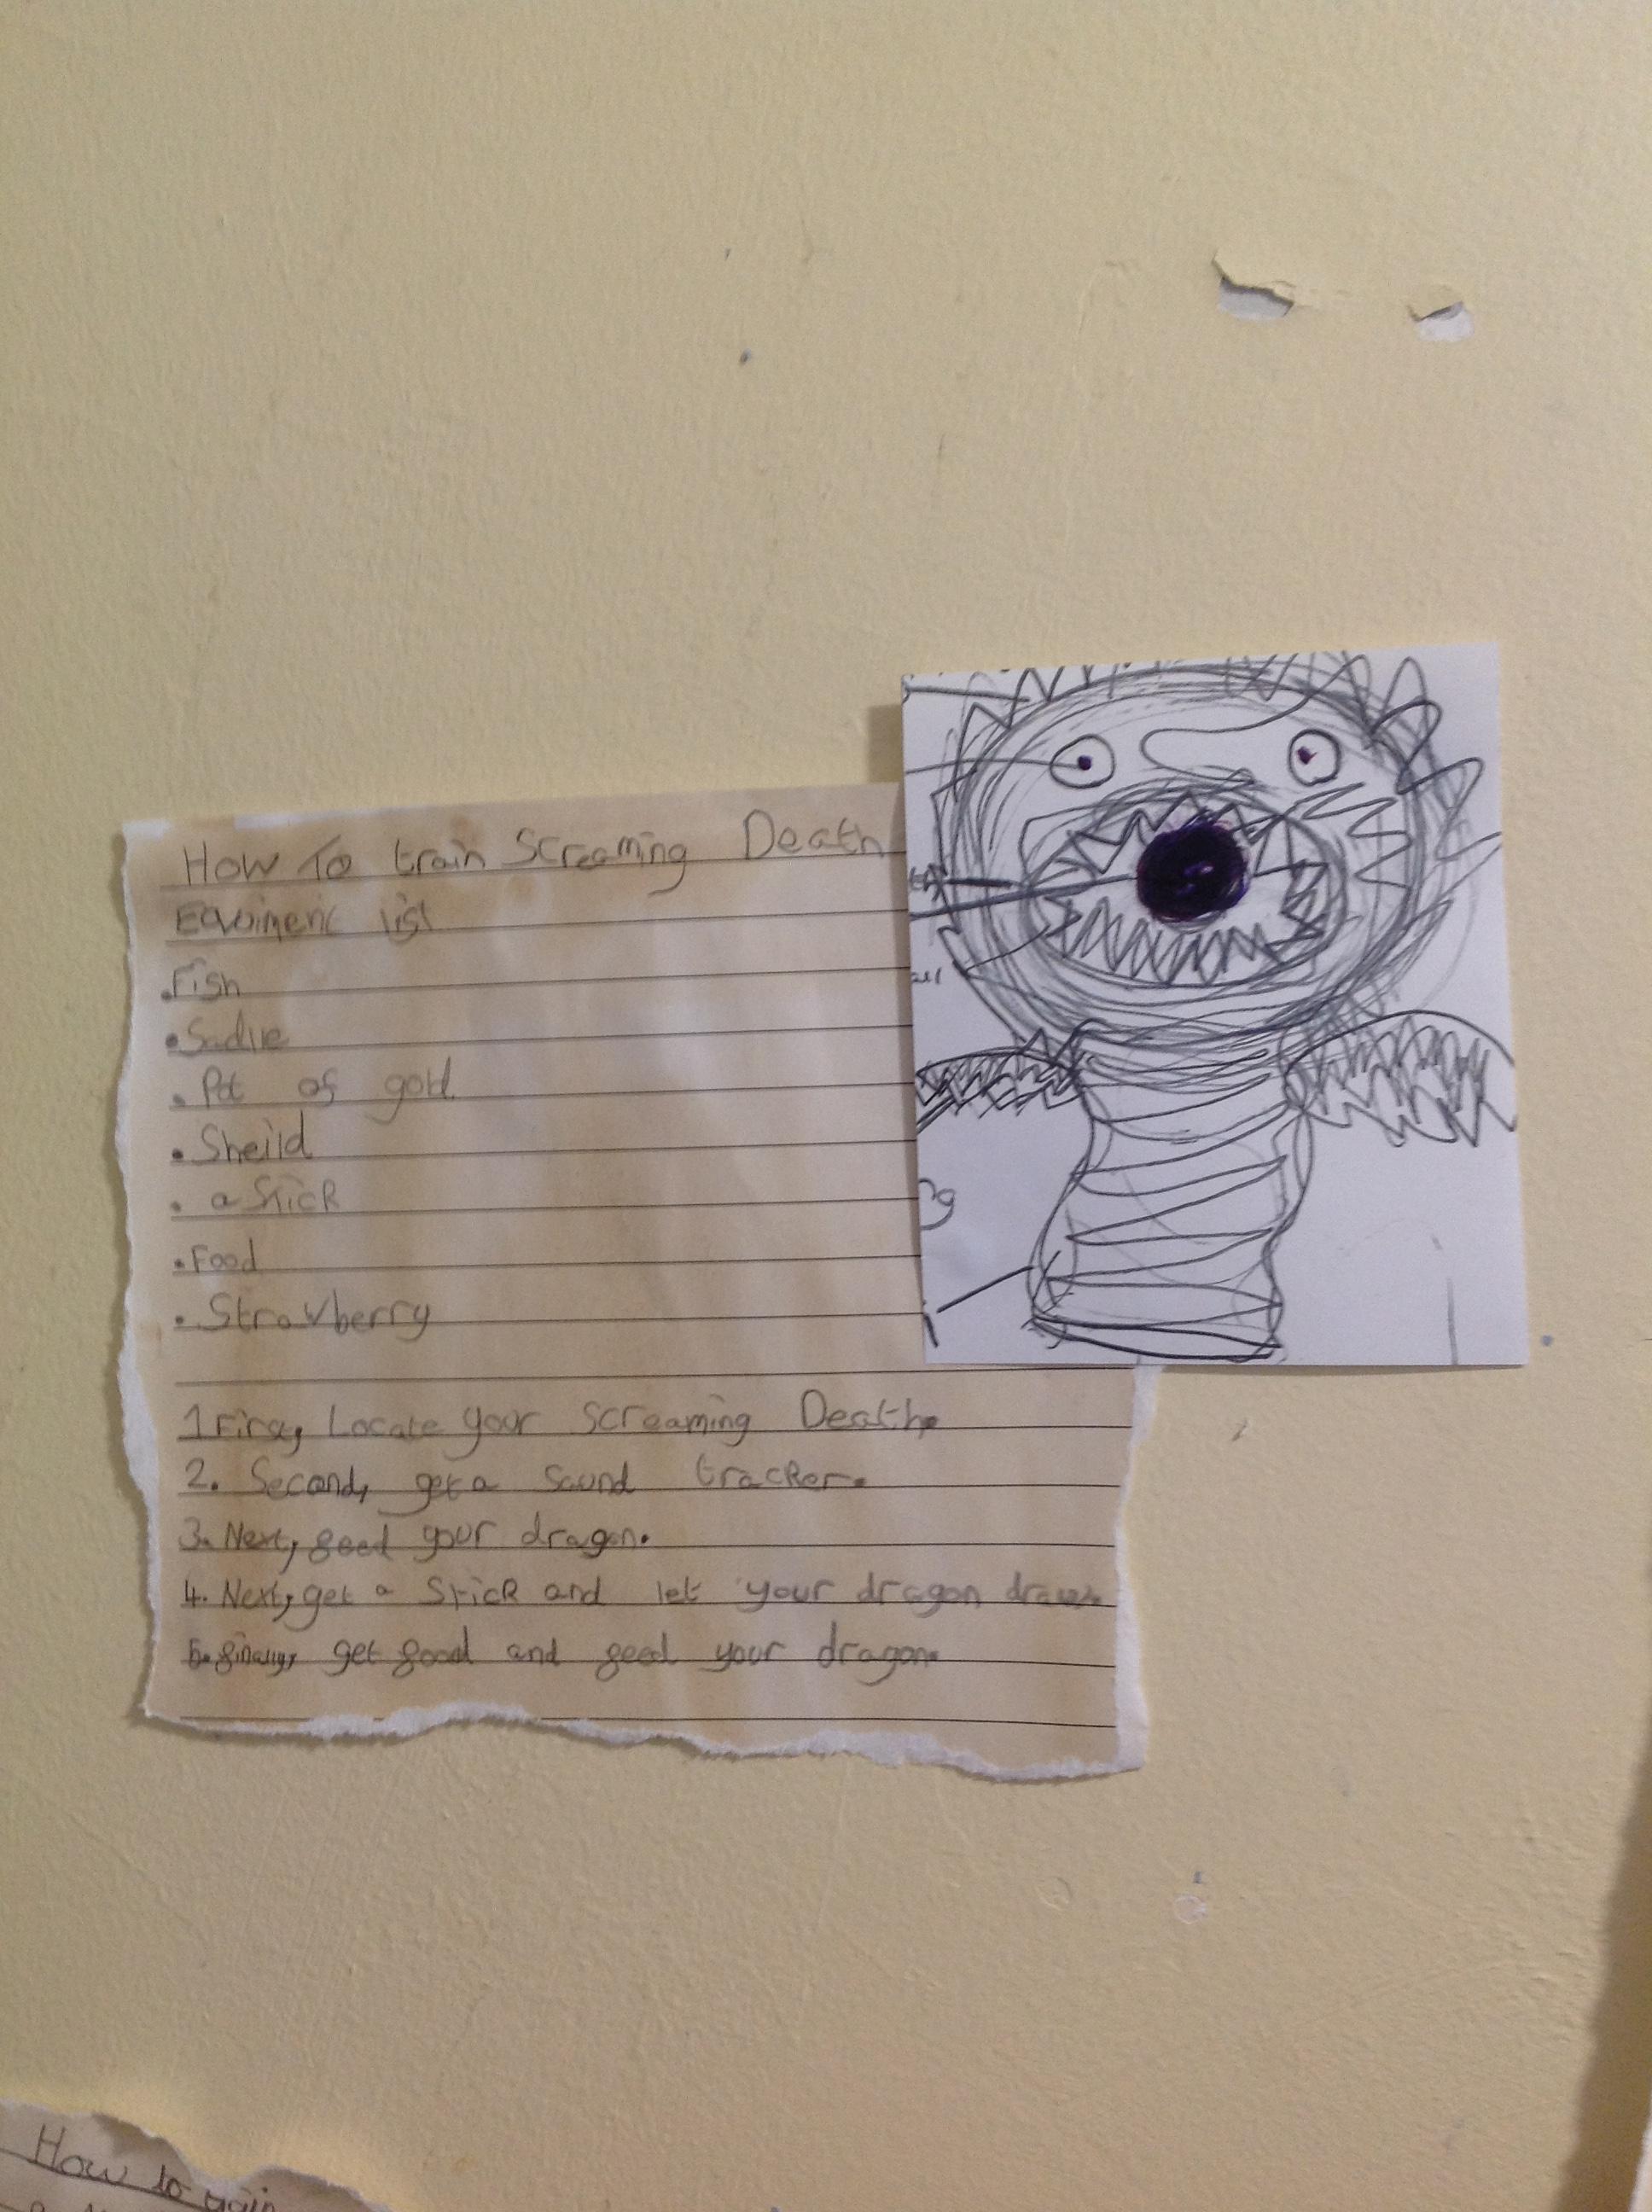 How To train Screaming Death
Equiment list
.Fish
• Sadle
. Pot of gold
• Sheild
. a stick
• Food
• Strawberry
1 First, Locate your Screaming Death.
2. Second, get a sound tracker.
3. Next, feed your dragon.
4. Next, get a stick and let your dragon draw.
5. finally, get food and feed your dragon.
How to